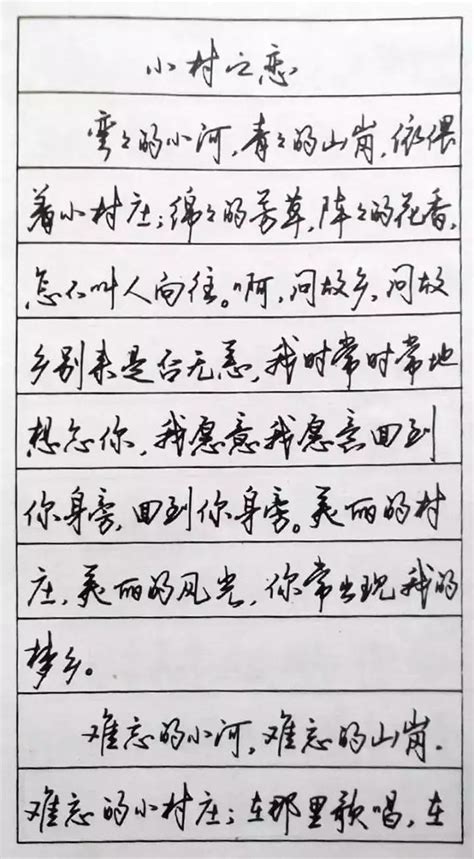 小村之恋
弯々的小河,青々的山岗,依偎
着小村庄;绵々的芳草,阵々的花香,
怎不叫人向往。啊,问故乡,问故
乡别来是否无恙,我时常时常地
想念你,我愿意我愿意回到
你身旁,回到你身旁。美丽的村
庄,美丽的风光,你常出现我的
梦乡。
难忘的小河,难忘的山岗.
难忘的小村庄;在那里歌唱,在